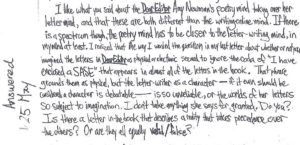 I like what you said about the Dear Editor Amy Newman's poetry mind taking over her
letter mind, and that these are both different than the writing online mind. If there
is a spectrum though, the poetry mind has to be closer to the letter-writing mind, in
my mind at least. I noticed that the way I worded the question in my last letter about whether or not you
imagined the letters in Dear Editor as physical or electronic seemed to ignore the coda of "I have
enclosed a SASE" that appears in almost all of the letters in the book. That phrase
grounds them as physical, but the letter writer as a character — if it even should be
considered a character is debatable — is so unreliable, or the worlds of her letters
so subject to imagination. I don't take anything she says for granted. Do you?
Is there a letter in the book that describes a reality that takes precedence over
the others? Or are they all equally valid/false?
Answered
1:25 May